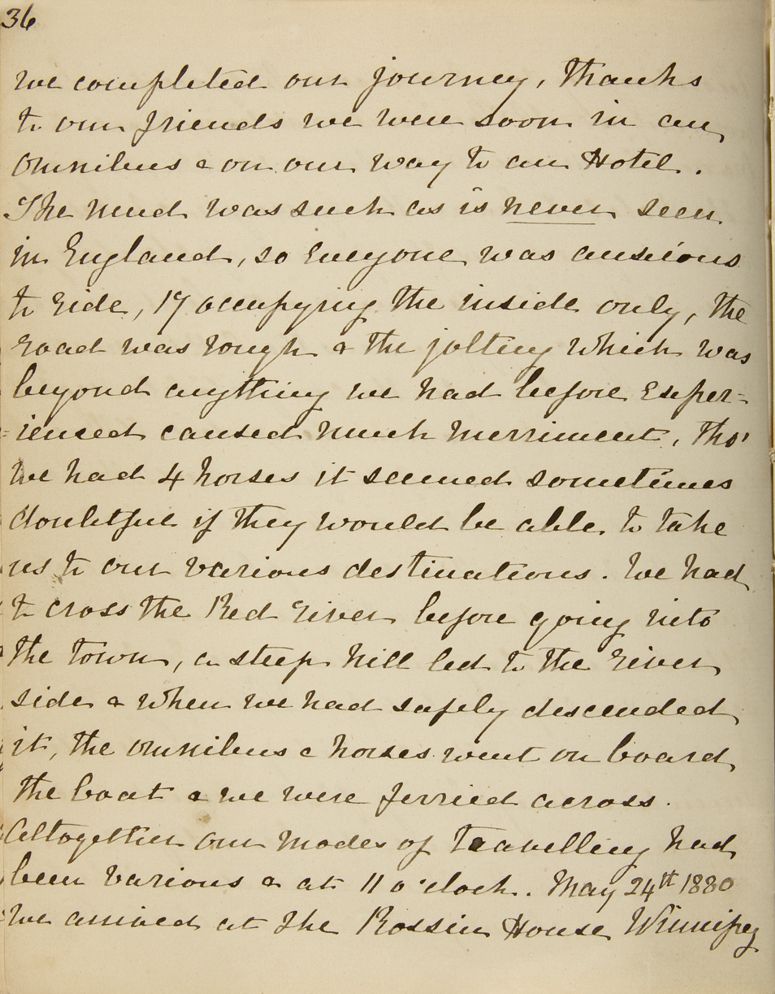 36
we completed our journey, thanks
to our friends we were soon in an
omnibus & on our way to an Hotel.
The mud was such as is never seen
in England, so everyone was anxious
to ride, 17 occupying the inside only, the
road was rough & the jolting which was
beyond anything we had before exper=
=ienced caused much merriment, tho'
we had 4 horses it seemed sometimes
doubtful if they would be able to take
us to our various destinations. We had
to cross the Red river before going into
the town, a steep hill led to the river
side & when we had safely descended
it, the omnibus & horses went on board
the boat & we were ferried across.
Altogether our modes of travelling had
been various & at 11 o'clock. May 24th 1880
we arrived at the Rossin House Winnipeg